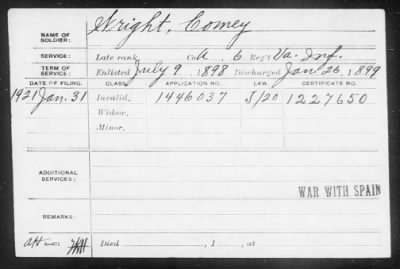 NAME OF SOLDIER: Wright, Comey
SERVICE: Late rank, Co. A, 6 Reg't Va. Inf.
TERM OF SERVICE: Enlisted July 9, 1898 Discharged Jan. 26, 1899
DATE OF FILING. CLASS. APPLICATION NO. LAW. CERTIFICATE NO.
1921 Jan. 31 Invalid, 1446037 J/20 1227650
Widow,
Minor,
ADDITIONAL SERVICES:
WAR WITH SPAIN
REMARKS:
Died , 1 , at